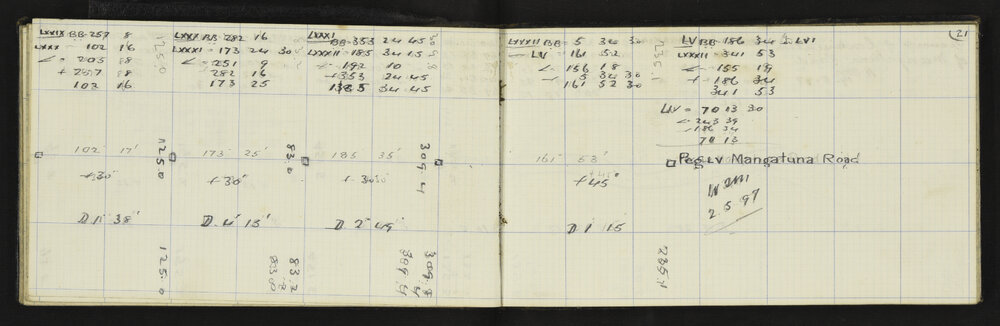 LXXIX BB 257 8
LXXX - 102 16
< = 205 88
+ 257 88
102 16
125.0
LXXX BB 282 16
LXXXI - 173 24 30
< = 251 9
282 16
173 25
LXXXI
BB 353 24 45
LXXXII - 185 34 15
< - 192 10
+353 24 45
185 34 45
309.8
LXXXII BB = 5 34 30
LV = 161 52
< 156 18
+ 5 34 30
161 52 30
235.1
LV BB 186 34 LVI
LXXXII = 341 53
< = 155 19
+ 186 34
341 53
LIV = 70 13 30
< 243 39
- 186 34
70 13
21
102° 17'
+30'
D 1° 38'
125.0
125.0
173° 25'
+30'
D 4° 13'
83.0
83.2
83.0
185° 35'
+30
D 2° 49'
309.4
309.8
309.4
161° 53'
+45
D 1 15
235.1
Peg LV Mangatuna Road
2.5.97